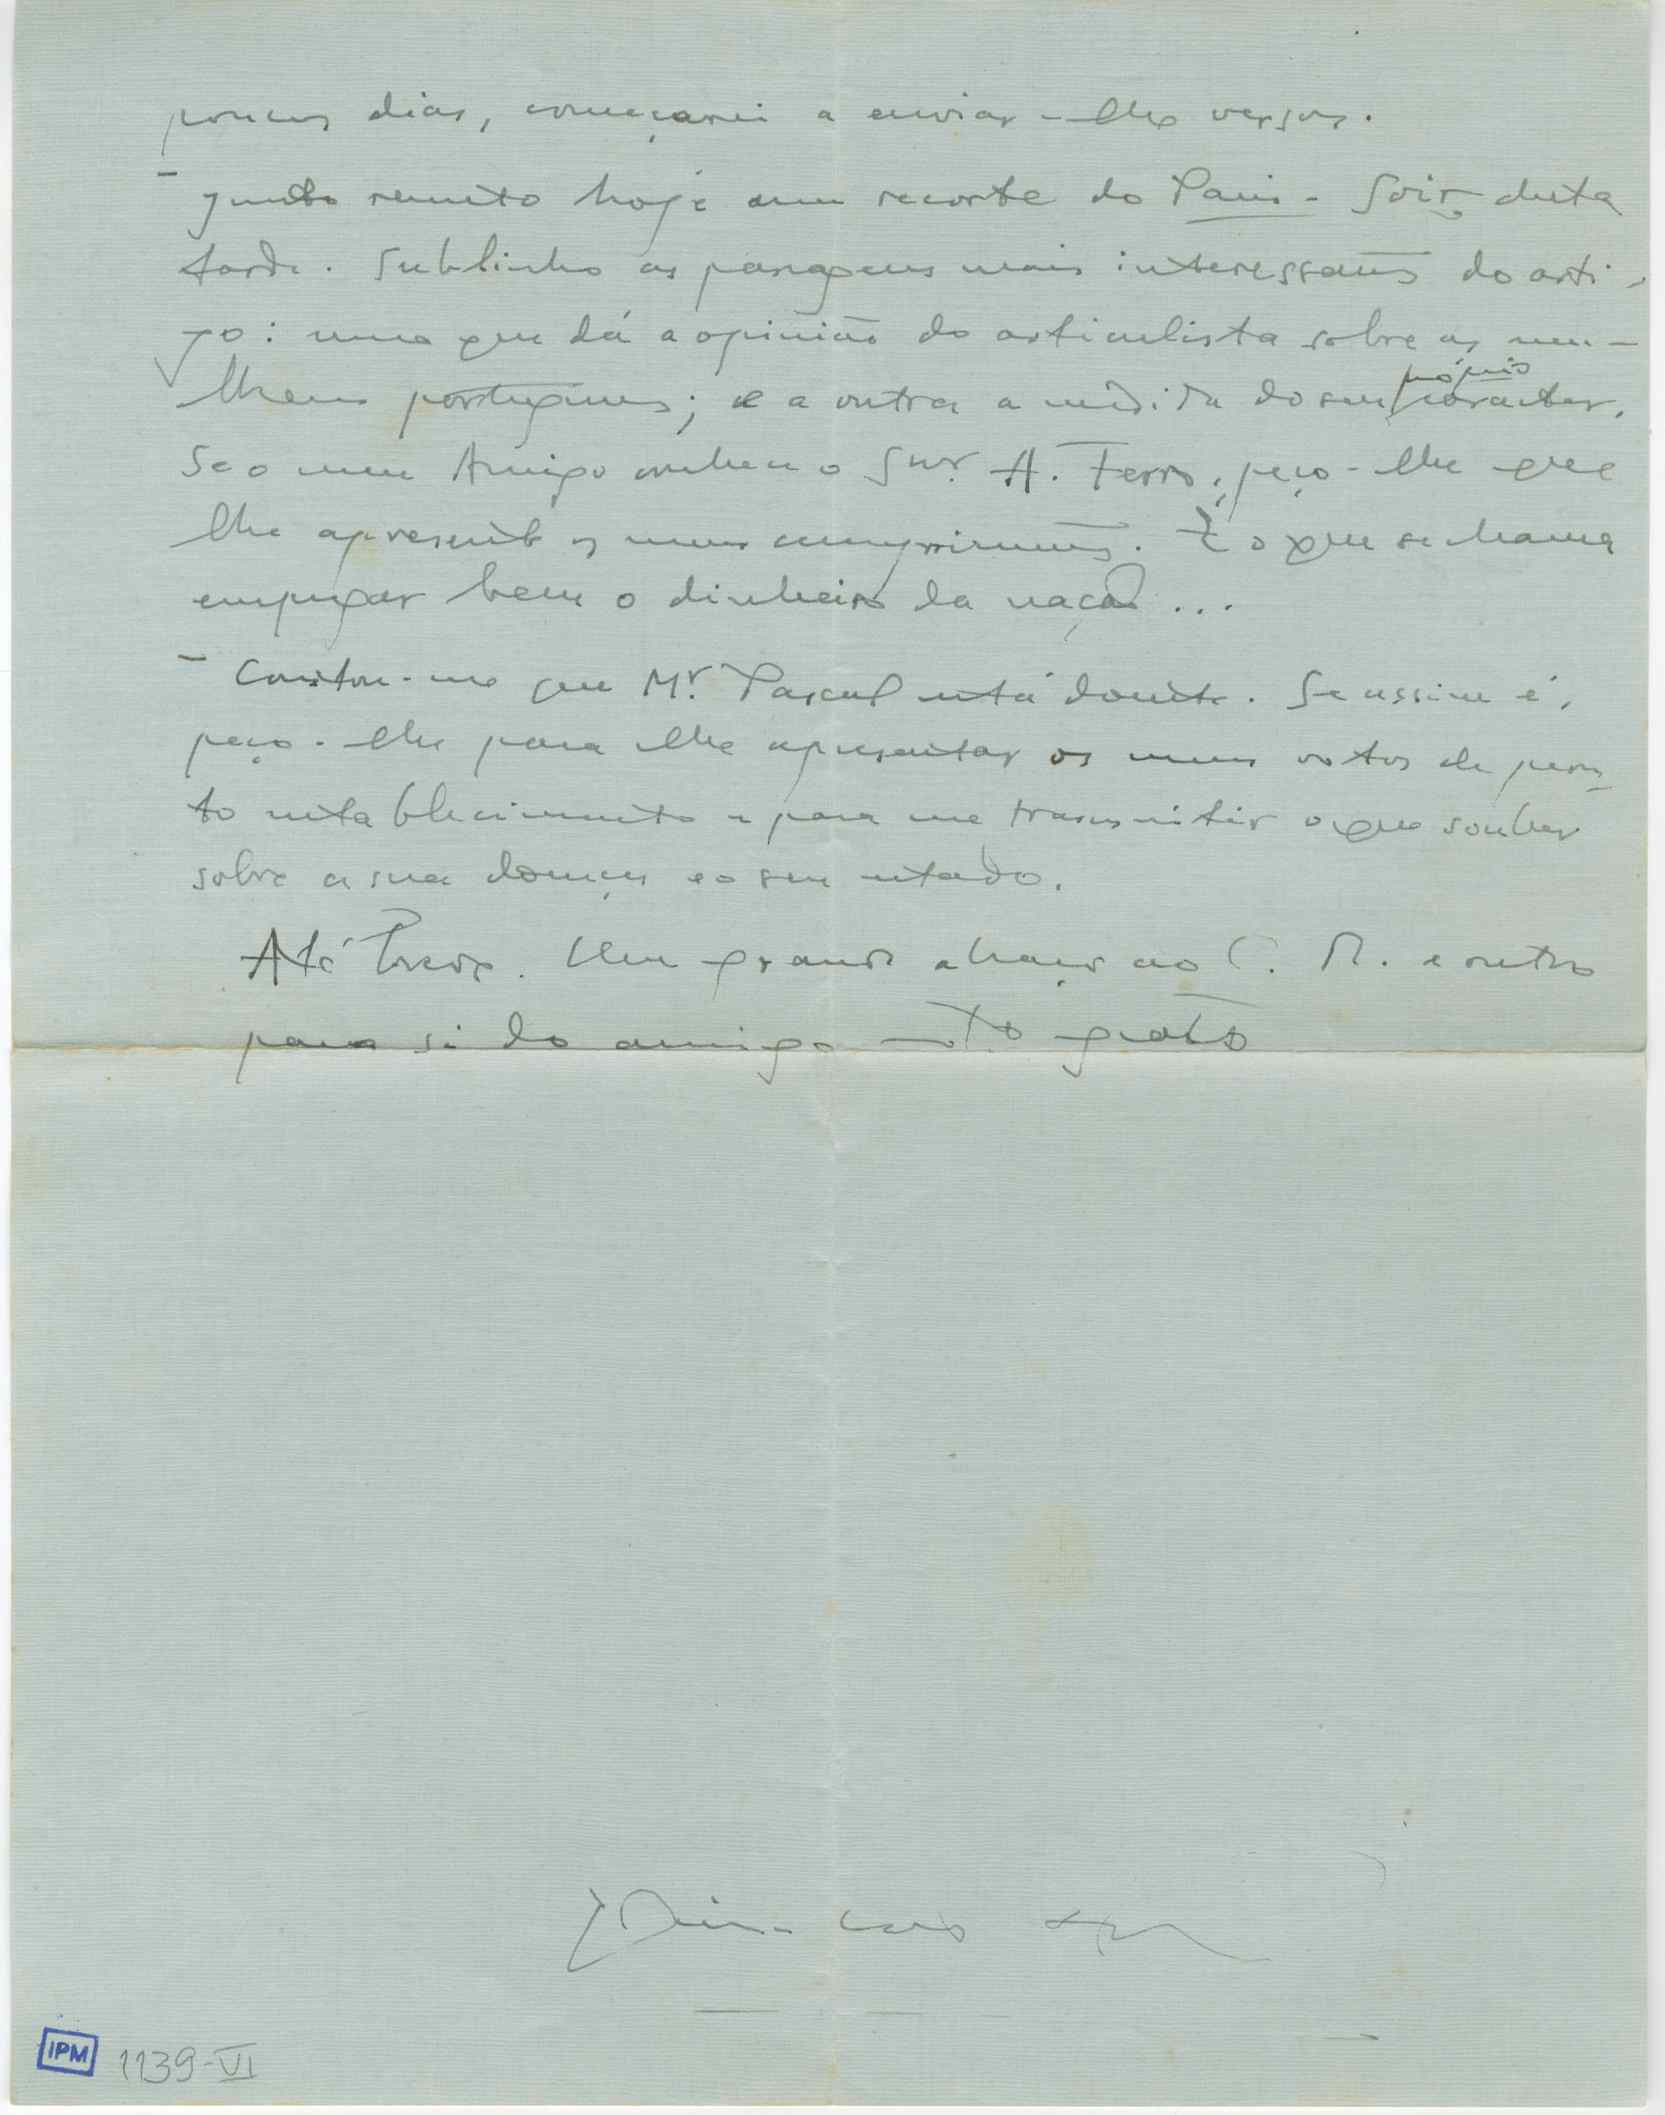 poucos dias, começarei a enviar-lhe versos.
– Junto remeto hoje um recorte do Paris-Soir desta
tarde. Sublinho as passagens mais interessantes do arti-
go: uma que dá a opinião do articulista sobre as mu-
lheres portuguesas; e a outra a medida do seu próprio caracter.
Se o meu Amigo conhece o Snr. A. Ferro, peço-lhe que
lhe apresente os meus cumprimentos. É o que se chama
empregar bem o dinheiro da nação...
– Constou-me que Mr. Pascal está doente. Se assim é,
peço-lhe para lhe apresentar os meus votos de pron-
to restablecimento e para me transmitir o que souber
sobre a sua doença e o seu estado.
Até breve. Um grande abraço ao C. R. e outro
para si do amigo mto grato
IPM 1139-VI